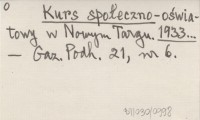 o
Kurs społeczno-oświa-
towy w Nowym Targu. 1933...
— Gaz. Podh. 21, nr 6.